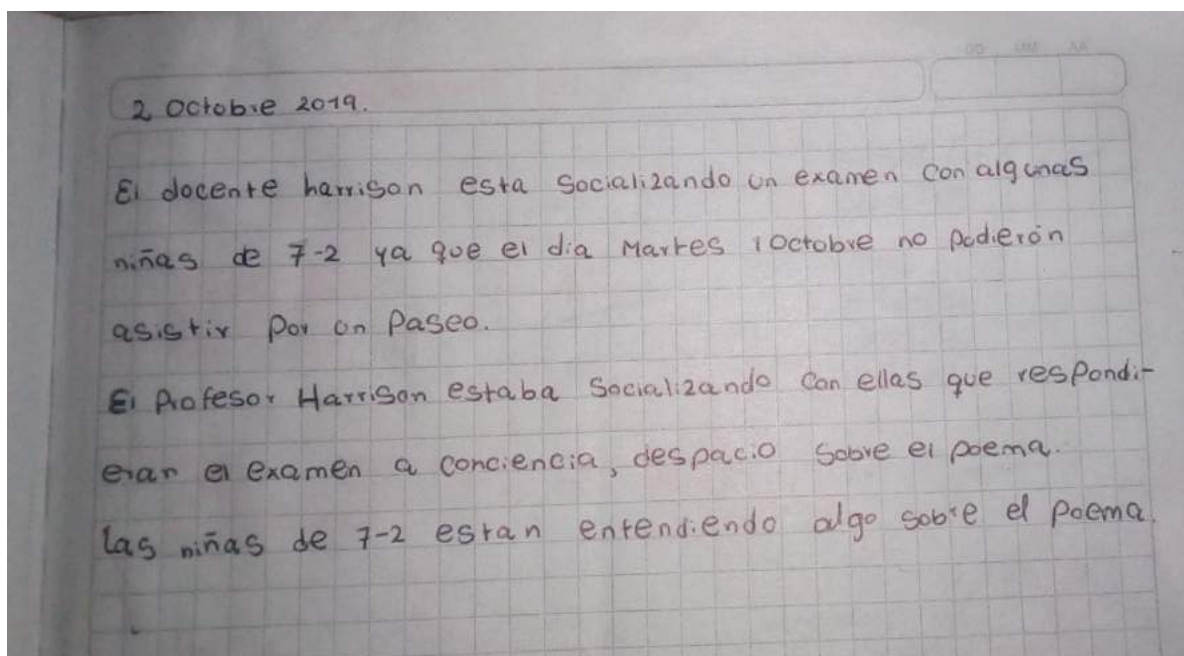 DD MM AA
2 Octobre 2019.
El docente harrison esta Socializando un examen con algunas
niñas de 7-2 ya que el dia Martes 1 Octobre no pudierón
asistir Por un Paseo.
El Profesor Harrison estaba Socializando con ellas que respondi-
eran el examen a conciencia, despacio Sobre el poema.
las niñas de 7-2 estan entendiendo algo sobre el poema.